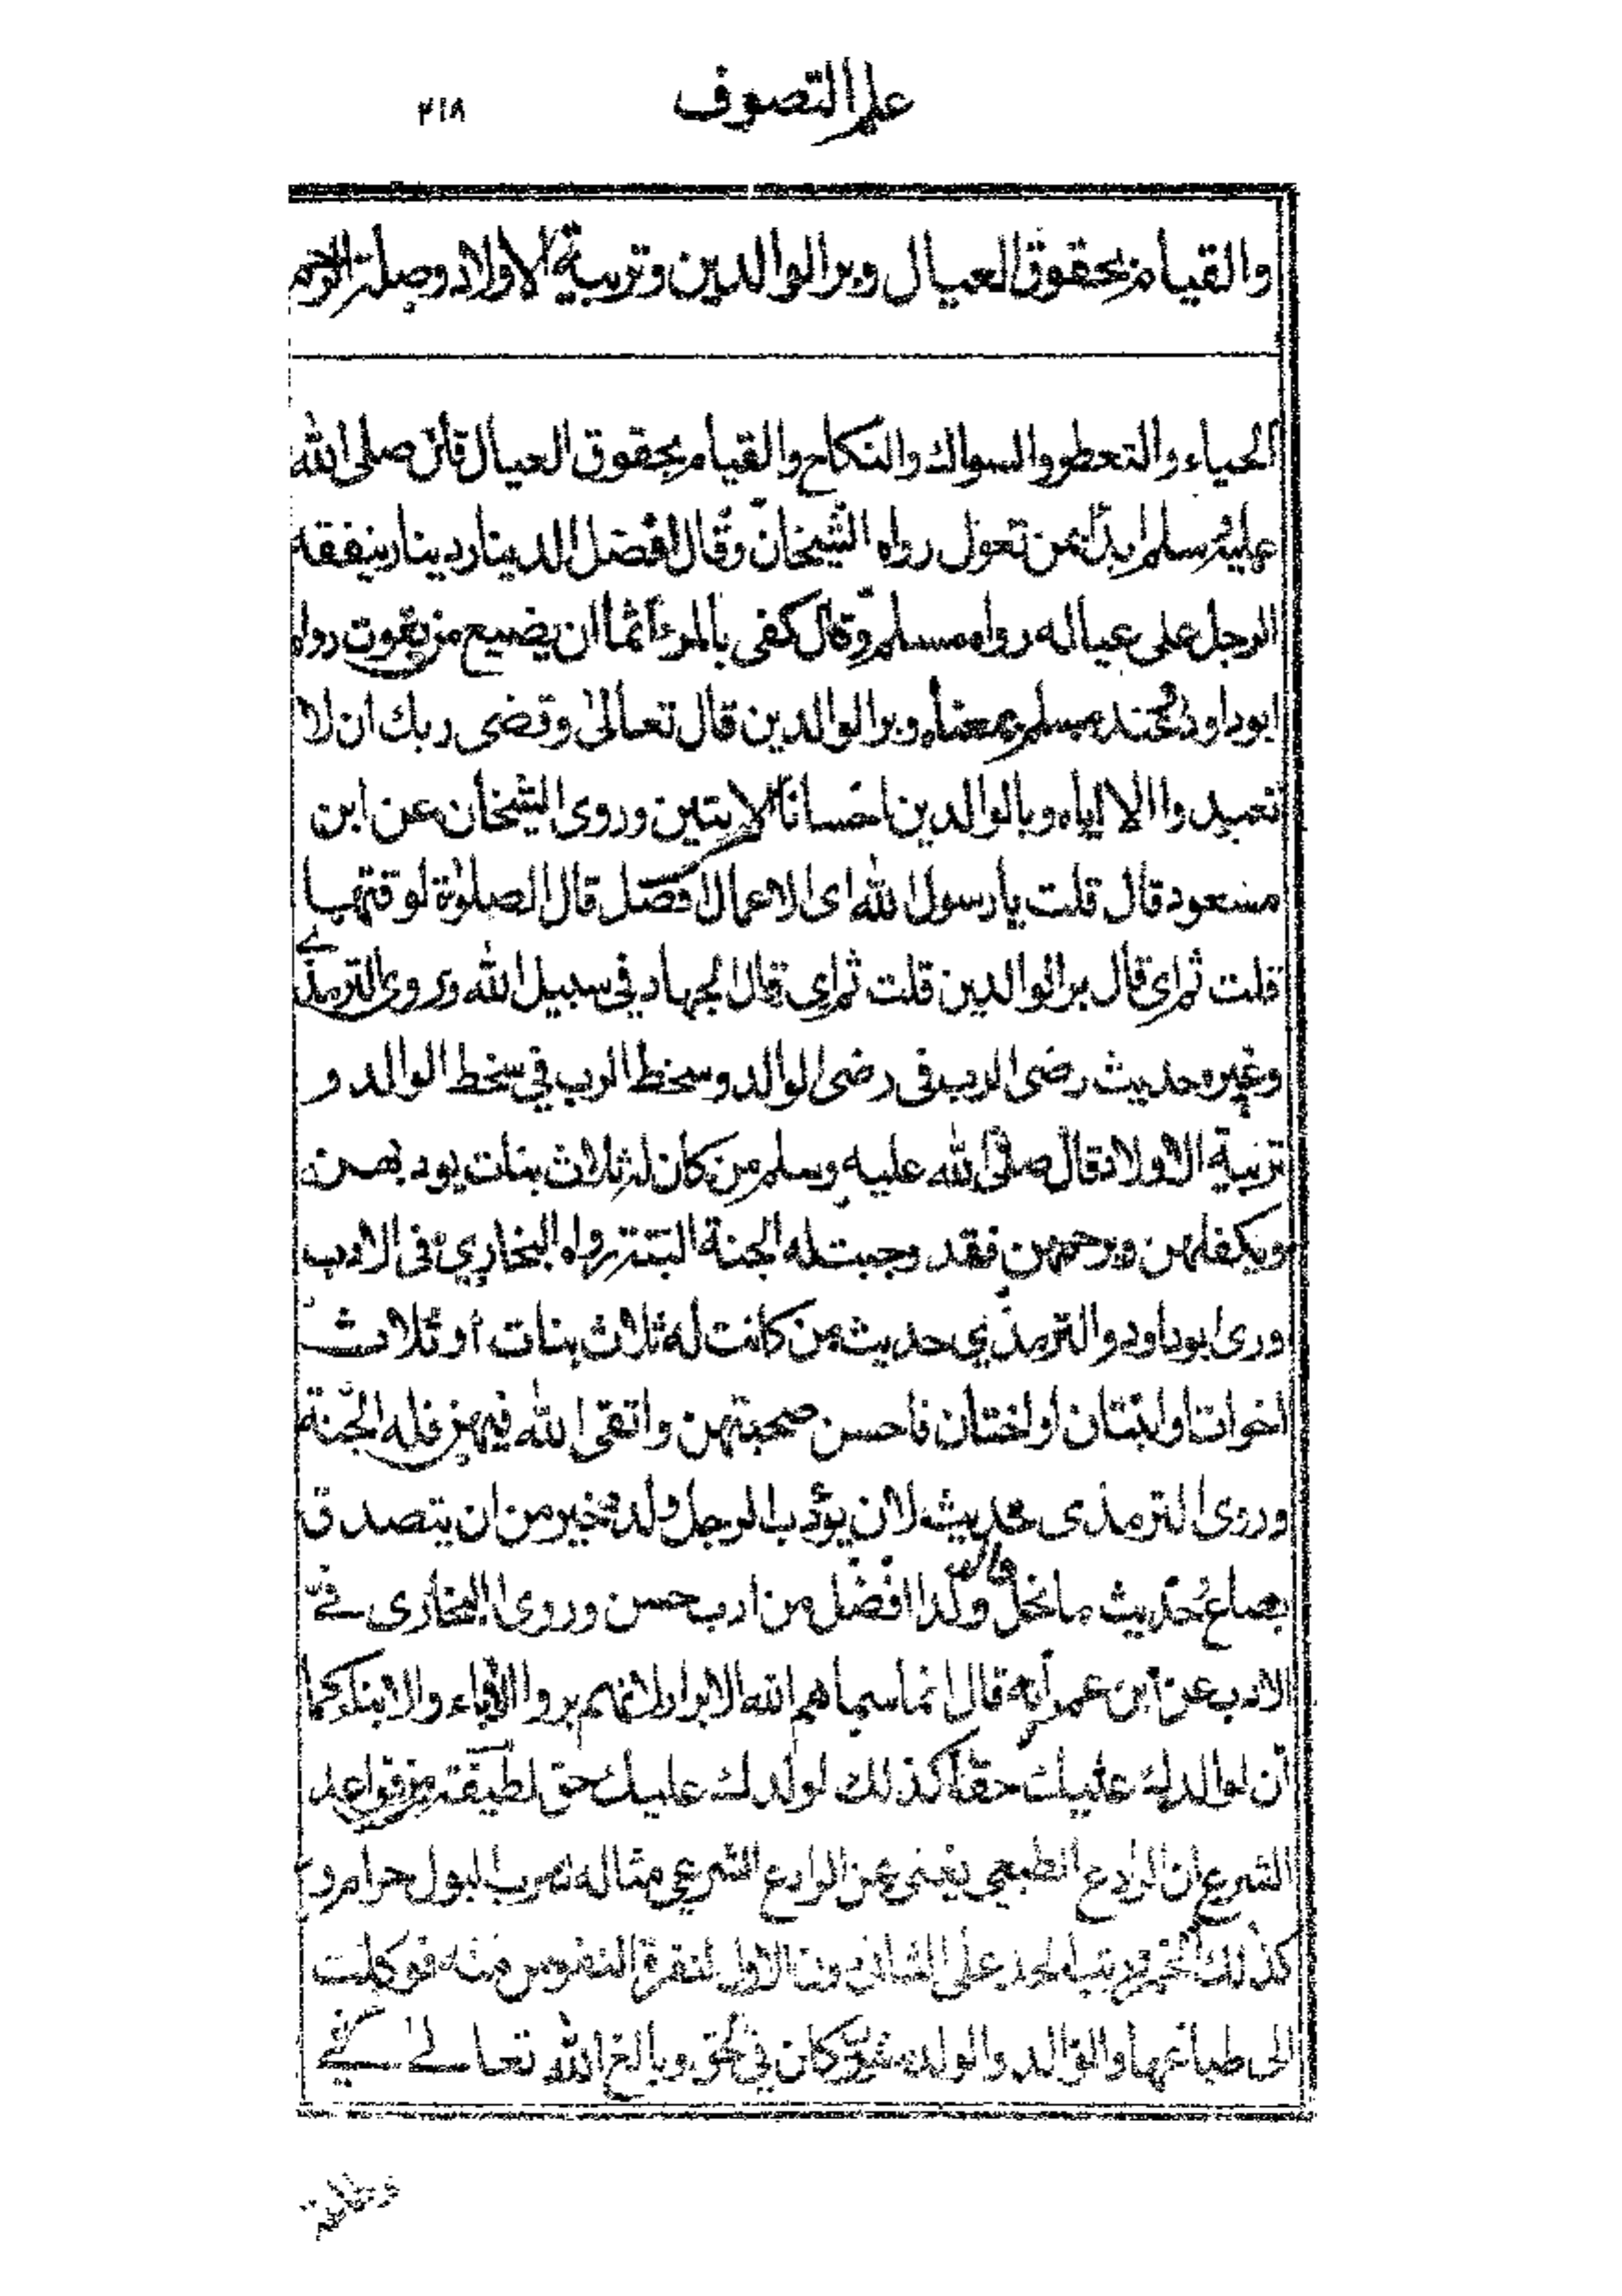 علم التصوف ٢١٨
والقيام بحقوق العيال وبر الوالدين وتربية الاولاد وصلة الرحم
الحياء والتعطر والسواك والنكاح والقيام بحقوق العيال قال صلى الله
عليه وسلم ابدأ بمن تعول رواه الشيخان وقال افضل الدينار دينار ينفقه
الرجل على عياله رواه مسلم وقال كفى بالمرء اثما ان يضيع من يقوت رواه
ابوداود وعند مسلم بمعناه وبر الوالدين قال تعالى وقضى ربك ان لا
تعبدوا الا اياه وبالوالدين احسانا الايتين وروى الشيخان عن ابن
مسعود قال قلت يارسول الله اى الاعمال افضل قال الصلوة لوقتها
قلت ثم اي قال بر الوالدين قلت ثم اي قال الجهاد في سبيل الله وروى الترمذي
وغيره حديث رضى الرب فى رضى الوالد وسخط الرب في سخط الوالد و
تربية الاولاد قال صلى الله عليه وسلم من كان له ثلاث بنات يودبهن
ويكفلهن ويرحمهن فقد وجبت له الجنة البتة رواه البخاري فى الادب
وروى ابوداود والترمذي حديث من كانت له ثلاث بنات او ثلاث
اخوات او ابنتان او اختان فاحسن صحبتهن واتقى الله فيهن فله الجنة
وروى الترمذى حديث لان يؤدب الرجل ولده خير من ان يتصدق
بصاع وحديث ما نحل والد ولدا افضل من ادب حسن وروى البخارى فى
الادب عن ابن عمر انه قال انما سماهم الله الابرار لانهم بروا الآباء والابناء كما
ان لوالدك عليك حقا كذلك لولدك عليك حق لطيفة من قواعد
الشرع ان الوازع الطبعي يغنى عن الوازع الشرعي مثاله شرب البول حرام و
كذلك الخمر ورتب الحد على الثانى دون الاول لنفرة النفوس منه فوكلت
الى طباعها والوالد والولد مشتركان في الحق وبالغ الله تعالى في